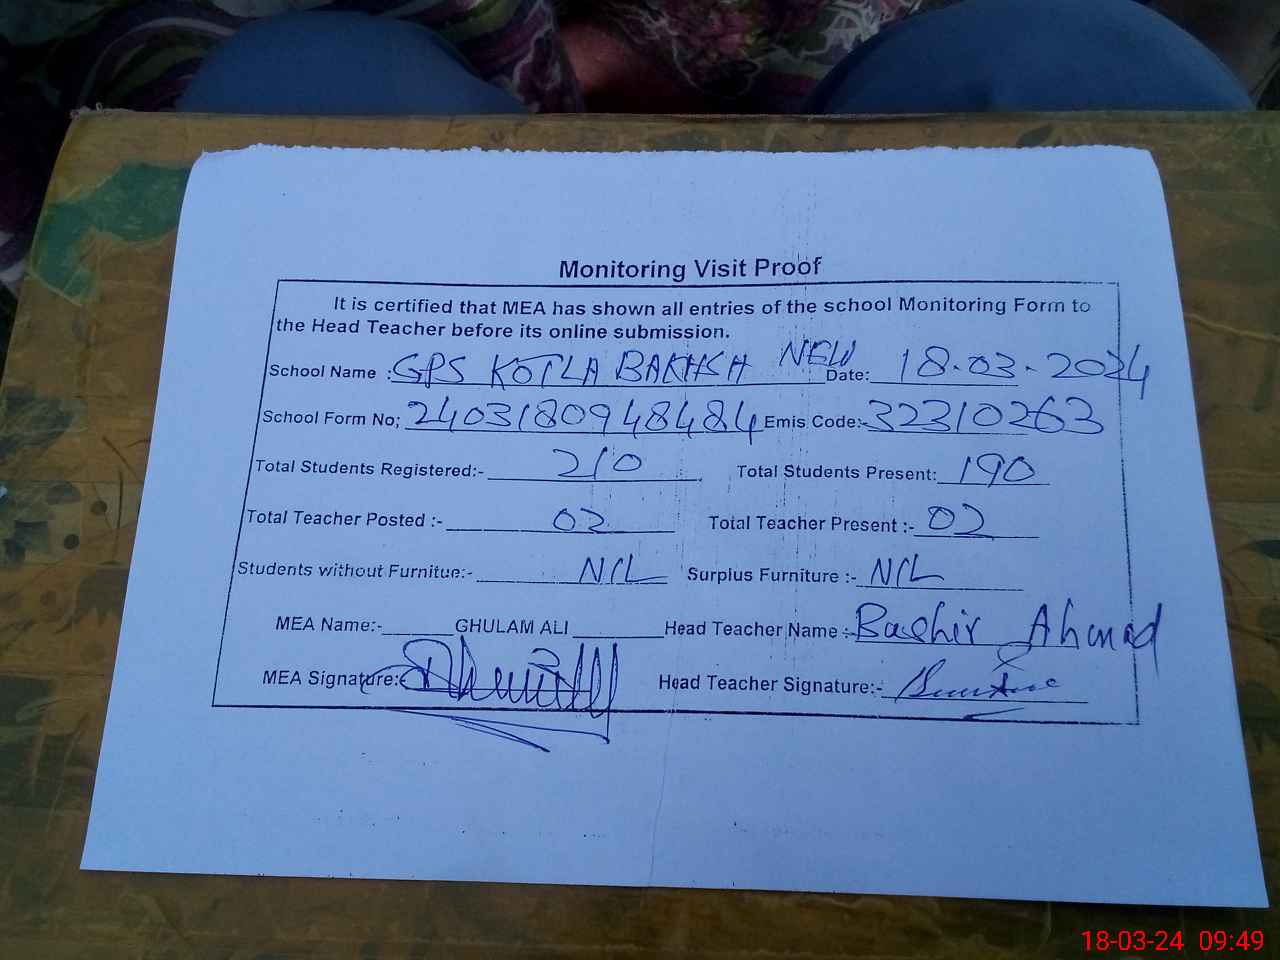 Monitoring Visit Proof
It is certified that MEA has shown all entries of the school Monitoring Form to
the Head Teacher before its online submission.
School Name :- GPS KOTLA BAKHSH NEW Date: 18.03.2024
School Form No; 2403180948484 Emis Code:- 32310263
Total Students Registered:- 210 Total Students Present: 190
Total Teacher Posted :- 02 Total Teacher Present :- 02
Students without Furnitue:- NIL Surplus Furniture :- NIL
MEA Name:- GHULAM ALI Head Teacher Name :- Bashir Ahmad
MEA Signature: Head Teacher Signature:-
18-03-24 09:49